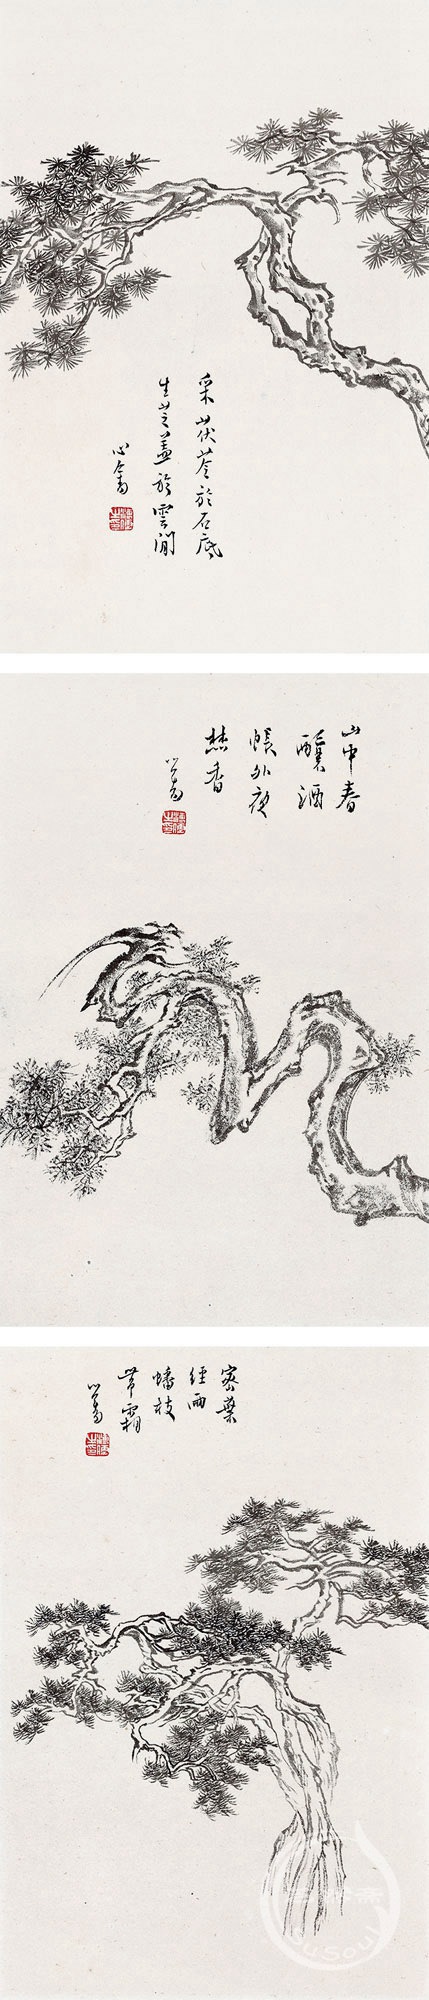 采茯苓於石底
生芝蓋於雲間
心畬
山中春
釀酒
帳外夜
焚香
心畬
密葉
經雨
蟠枝
帶霜
心畬
SuSoul